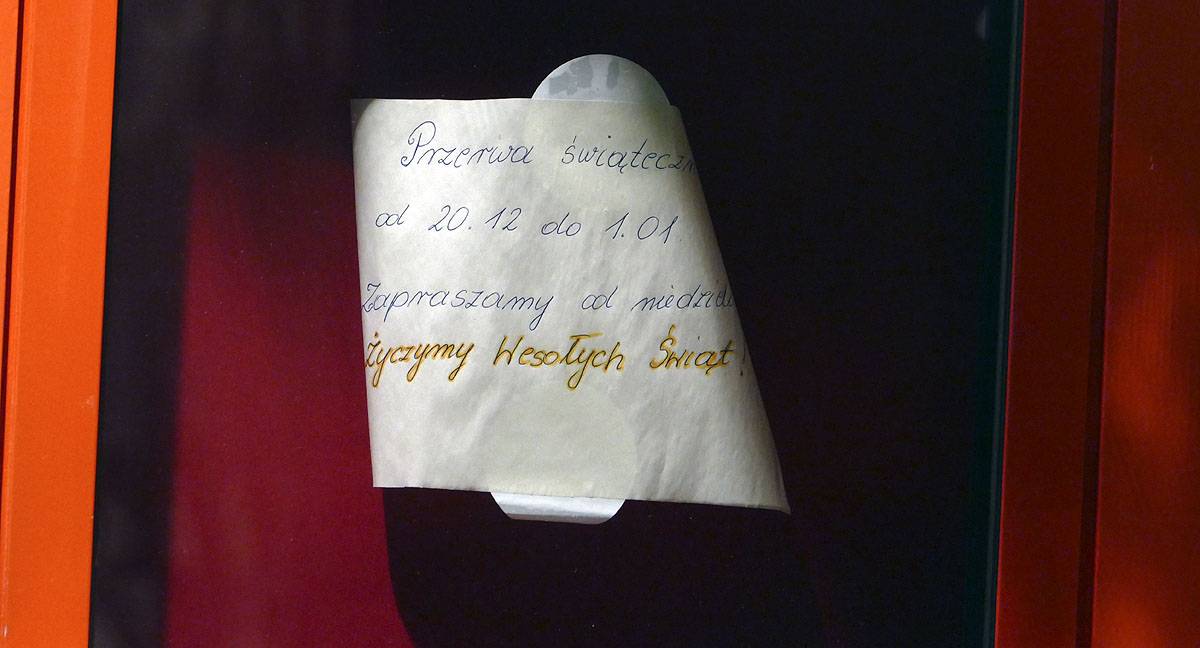 Przerwa świąteczn
od 20.12 do 1.01.
Zapraszamy od niedziel
Życzymy Wesołych Świąt!